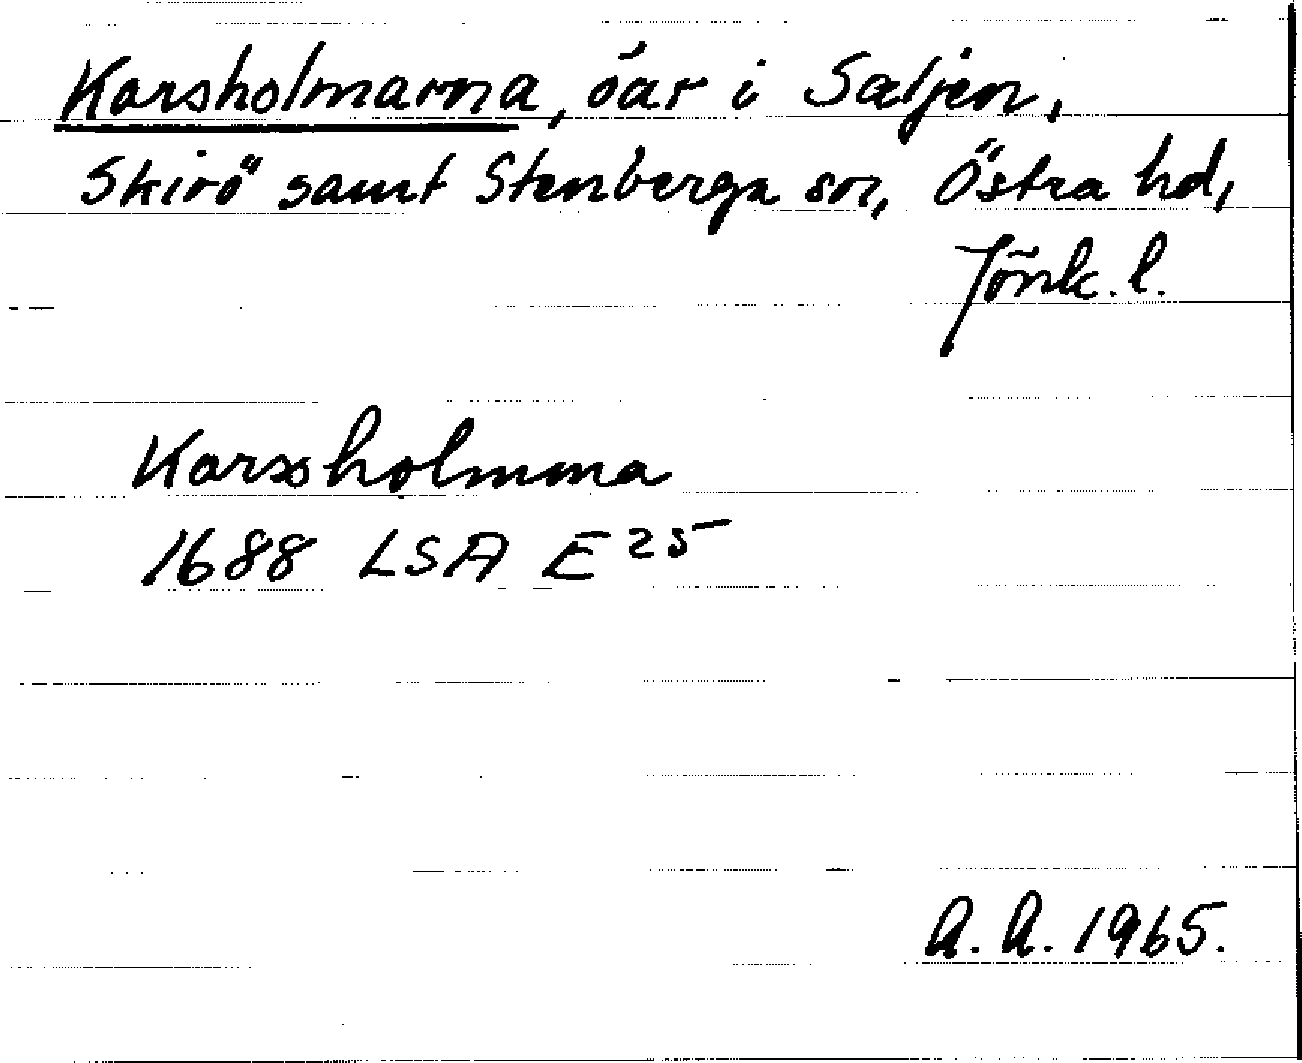 Karsholmarna, öar i Saljen,
Skirö samt Stenberga snr, Östra hd,
Jönk. l.
Karssholmma
1688 LSA E 25
A. A. 1965.